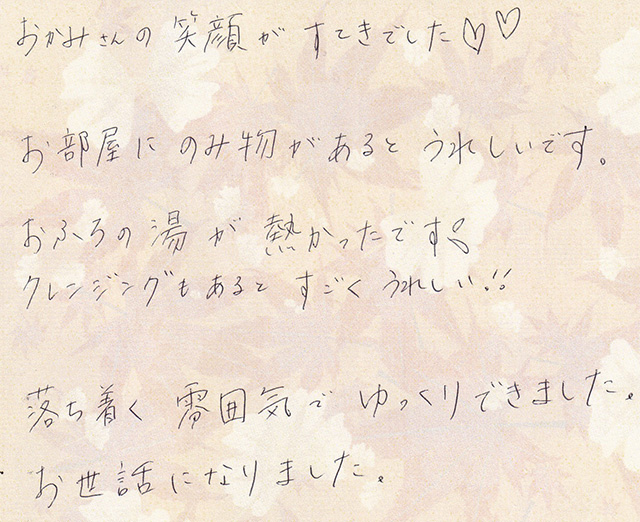 おかみさんの笑顔がすてきでした♡♡
お部屋にのみ物があるとうれしいです。
おふろの湯が熱かったです
クレンジングもあるとすごくうれしい!!
落ち着く雰囲気でゆっくりできました。
お世話になりました。